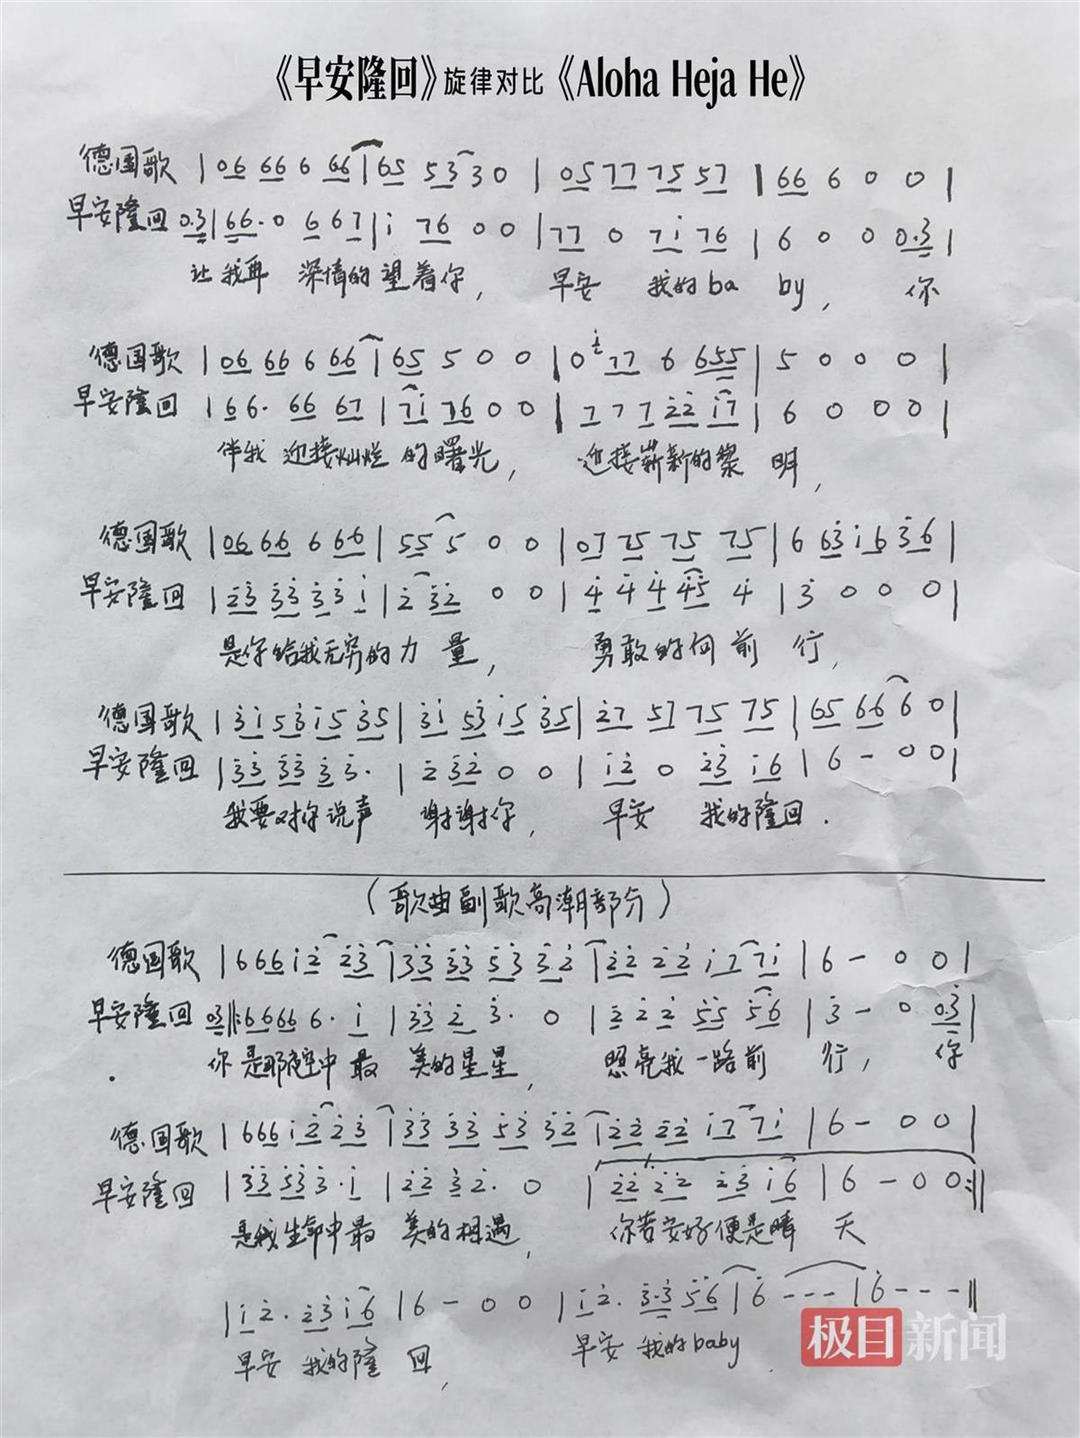 《早安隆回》旋律对比《Aloha Heja He》
德国歌 | 06 66 6 66 | 65 53 3 0 | 05 77 75 57 | 66 6 0 0 |
早安隆回 0.3 | 66. 0 6 67 | i 76 0 0 | 77 0 7i 76 | 6 0 0 0.3 |
让我再 深情的望着你， 早安 我的ba by， 你
德国歌 | 06 66 6 66 | 65 5 0 0 | 0 77 6 655 | 5 0 0 0 |
早安隆回 | 66. 66 67 | 7i 76 0 0 | 7 7 7 22 i7 | 6 0 0 0 |
伴我 迎接灿烂 的曙光， 迎接崭新的黎 明，
德国歌 | 06 66 6 66 | 55 5 0 0 | 07 75 75 75 | 6 63 i6 36 |
早安隆回 | 23 33 33 i | 2 32 0 0 | 4 4 4 45 4 | 3 0 0 0 |
是你给我无穷的力 量， 勇敢的向前 行，
德国歌 | 3i 53 i5 35 | 3i 53 i5 35 | 27 57 75 75 | 65 66 6 0 |
早安隆回 | 33 33 3 3. | 2 32 0 0 | i2 0 23 i6 | 6 - 0 0 |
我要对你说声 谢谢你， 早安 我的隆回.
（歌曲副歌高潮部分）
德国歌 | 666i2 23 | 33 33 53 32 | 22 22 i7 7i | 6 - 0 0 |
早安隆回 03 |: 6666 6. i | 33 2 3. 0 | 2 2 2 55 56 | 3 - 0 0.3 |
你 是那夜空中 最 美的星星， 照亮我一路前 行， 你
德国歌 | 666i2 23 | 33 33 53 32 | 22 22 i7 7i | 6 - 0 0 |
早安隆回 | 33 53 3. i | 22 32. 0 | 22 22 23 i6 | 6 - 0 0 :||
是我生命中最 美的相遇， 你若安好便是晴 天
| i 2. 23 i6 | 6 - 0 0 | i 2. 3.3 56 | 6 - - - | 6 - - - ||
早安 我的隆 回， 早安 我的baby.
极目新闻